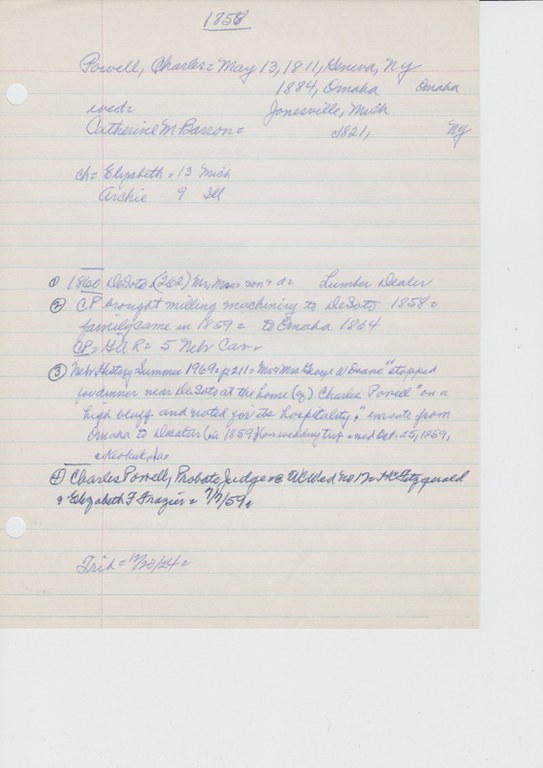 1858
Powell, Charles = May 13, 1811, Geneva, Ny
1884, Omaha Omaha
wed = Jonesville, Mich
Catherine M Barron = c1821, Ny
ch = Elizabeth = 13 Mich
Archie 9 Ill
① 1860 DeSoto (262) Lumber Dealer
② CP brought milling machinery to DeSoto 1858 =
family came in 1859 = to Omaha 1864
CP = = 5 Nebr Cav.
③ Nebr History Summer 1969 = p 211 = Mr & Mrs George W "stopped
for dinner near DeSoto at the home (of) Charles Powell" on a
"high bluff and noted for its hospitality," enroute from
Omaha to Decatur (in 1859) (on wedding trip = wed Oct. 25, 1859,
Keokuk, Ia =
④ Charles Powell, Probate Judge @ WC Wed no 17 = Fitzgerald
& Elizabeth F Frazier = 7/7/59 =
Trib = 12/28/24 =